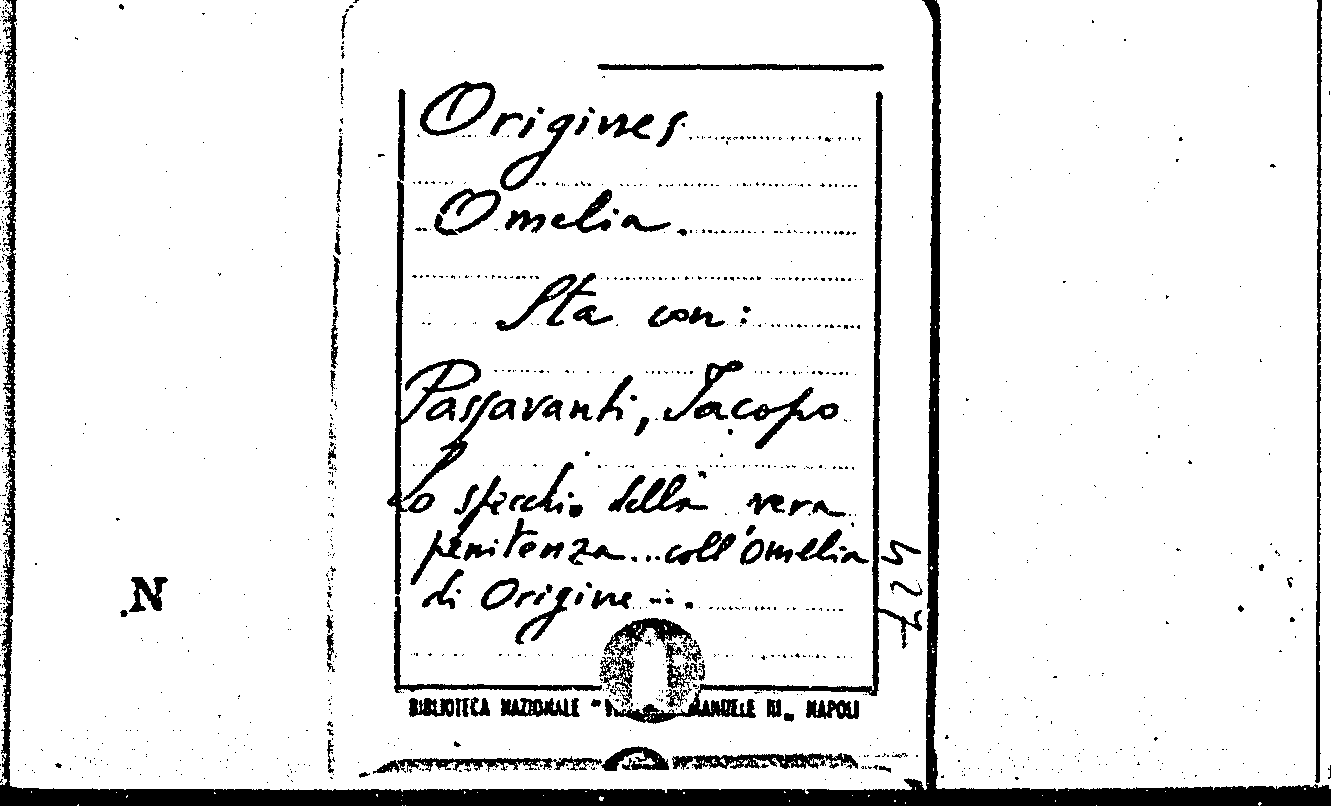 Origines
Omelia.
Sta con:
Passavanti, Jacopo
Lo specchio della vera
penitenza...coll'Omelia
di Origine...
N
BIBLIOTECA NAZIONALE " MANUELE III„ NAPOLI